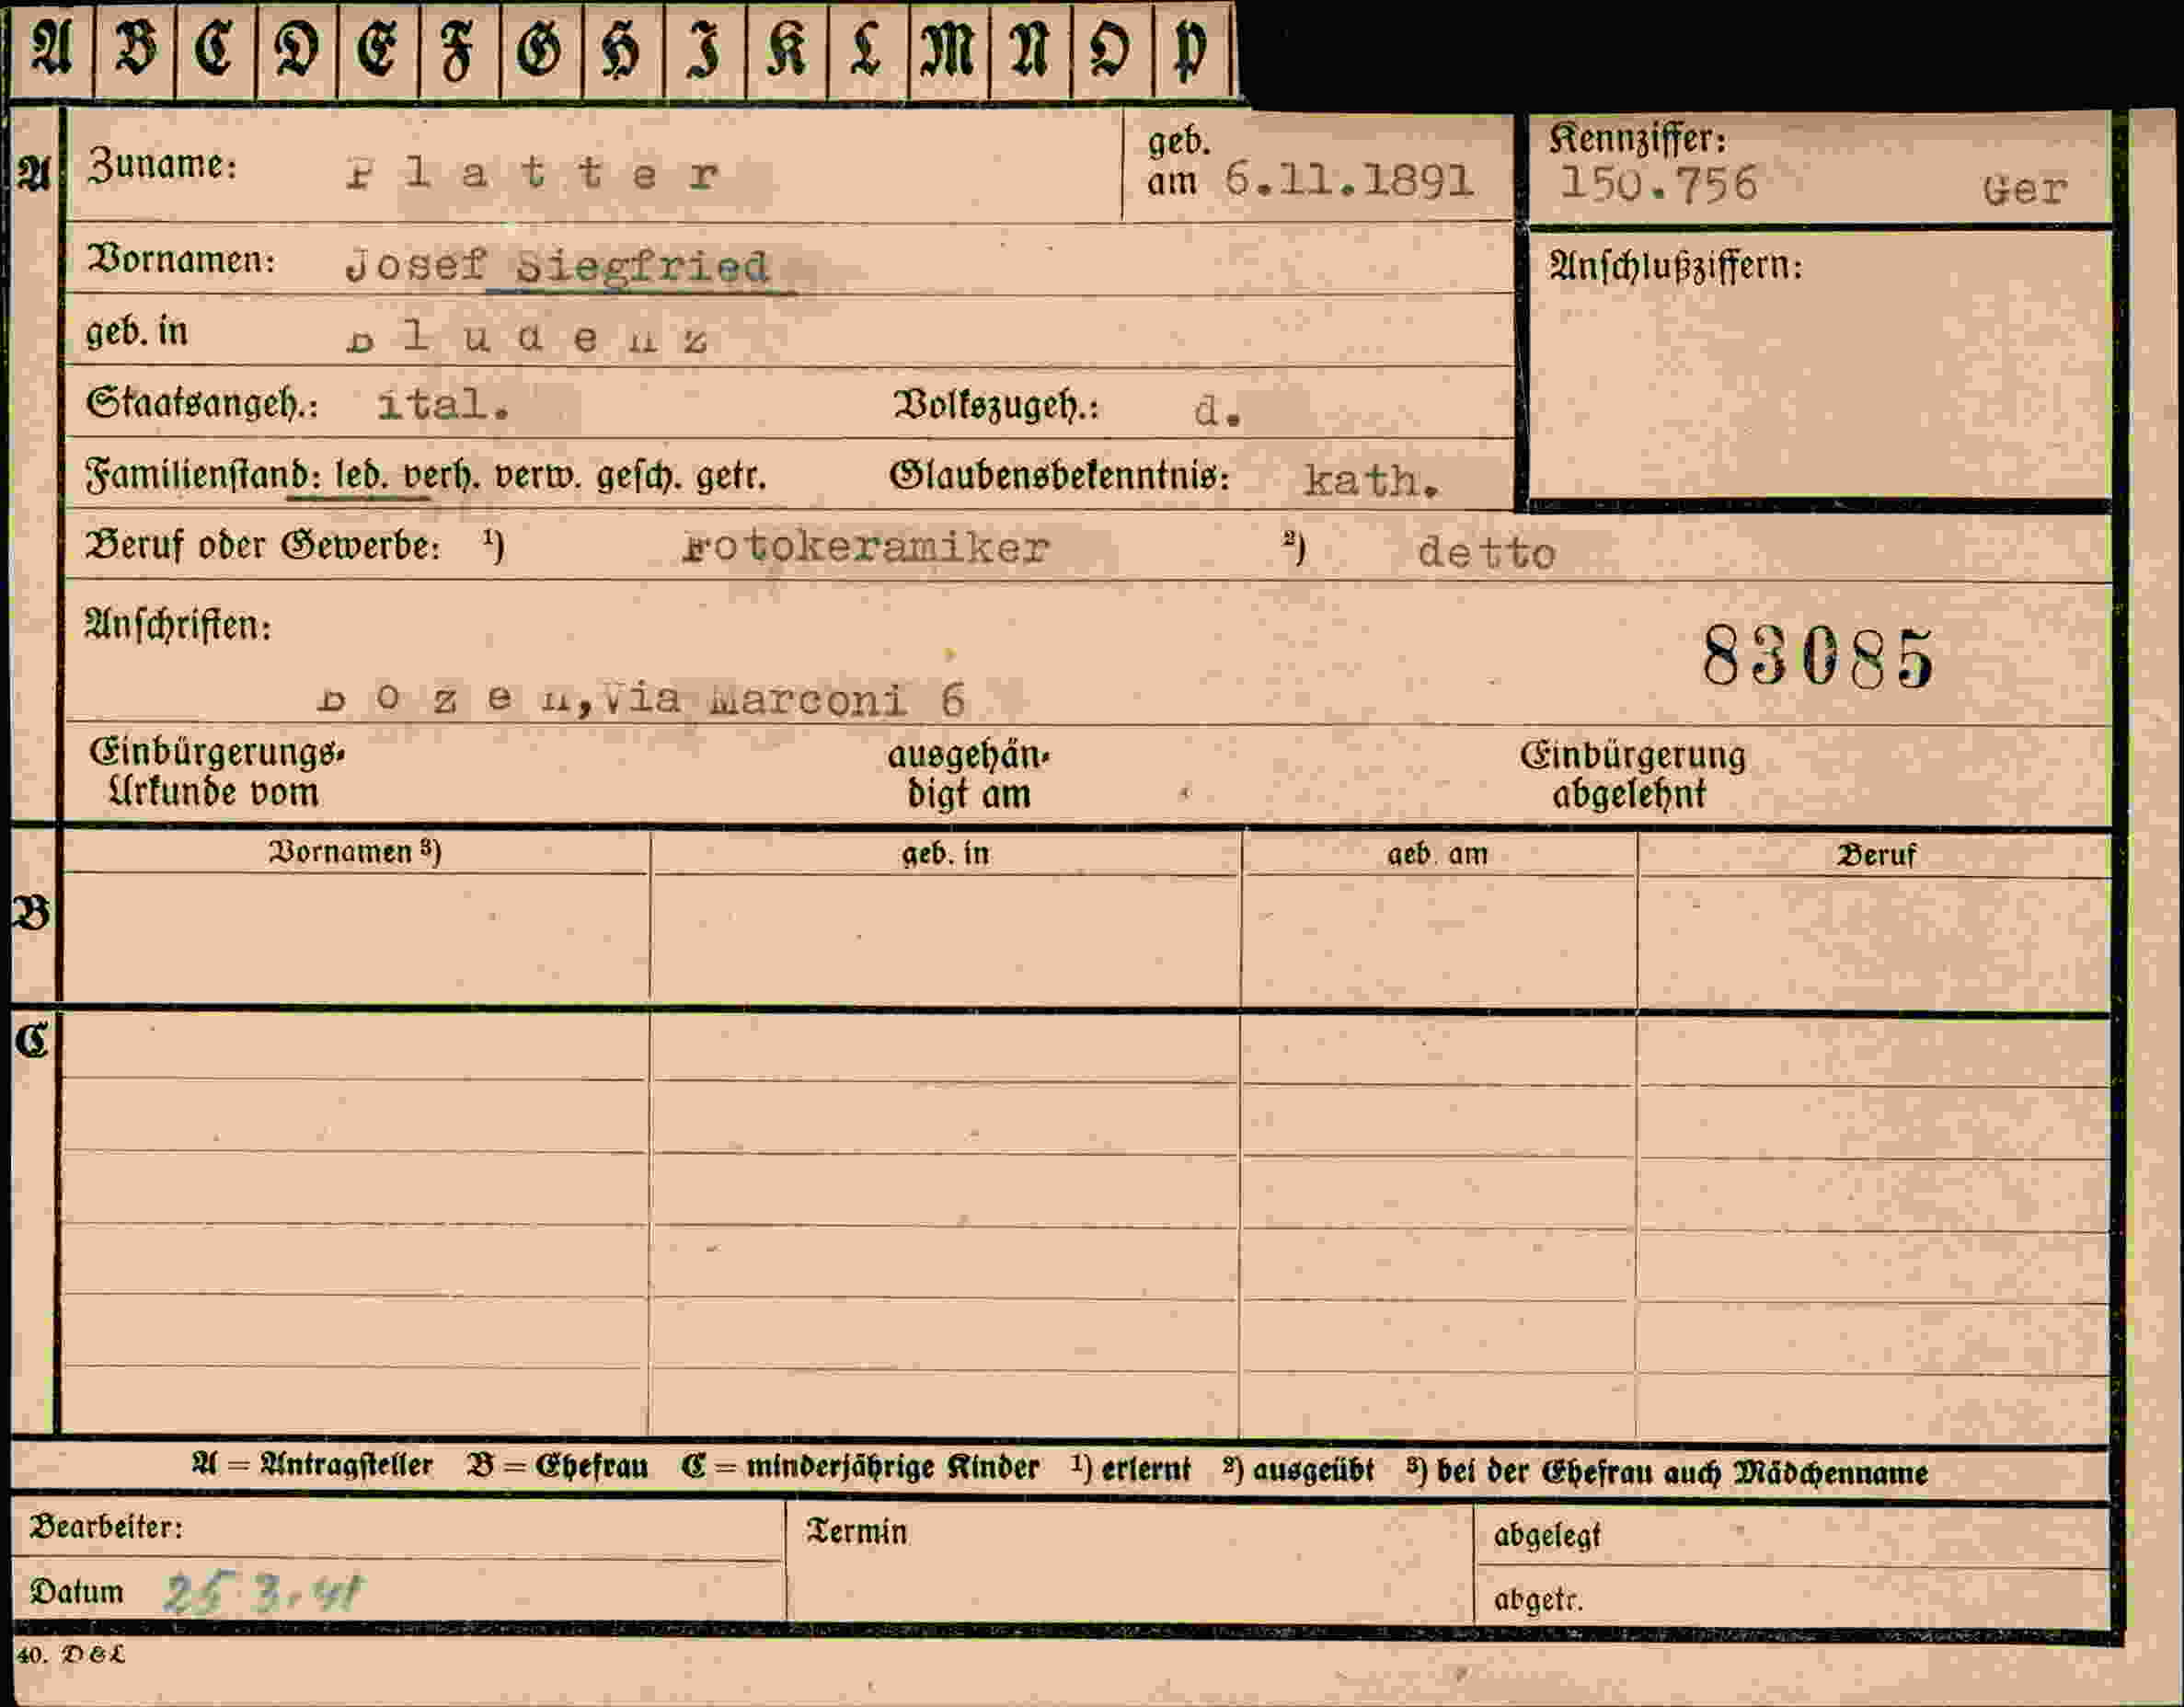 A B C D E F G H I K L M N O P
A Zuname: Platter geb. am 6.11.1891 Kennziffer: 150.756 Ger
Vornamen: Josef Siegfried Anschlußziffern:
geb. in Bludenz
Staatsangeh.: ital. Volkszugeh.: d.
Familienstand: led. verh. verw. gesch. getr. Glaubensbekenntnis: kath.
Beruf oder Gewerbe: 1) Fotokeramiker 2) detto
Anschriften:
83085
Bozen, Via Marconi 6
Einbürgerungs-Urkunde vom ausgehän-digt am Einbürgerung abgelehnt
Vornamen 3) geb. in geb. am Beruf
B
C
A = Antragsteller B = Ehefrau C = minderjährige Kinder 1) erlernt 2) ausgeübt 3) bei der Ehefrau auch Mädchenname
Bearbeiter: Termin abgelegt
Datum 25.3.41 abgetr.
40. D&L